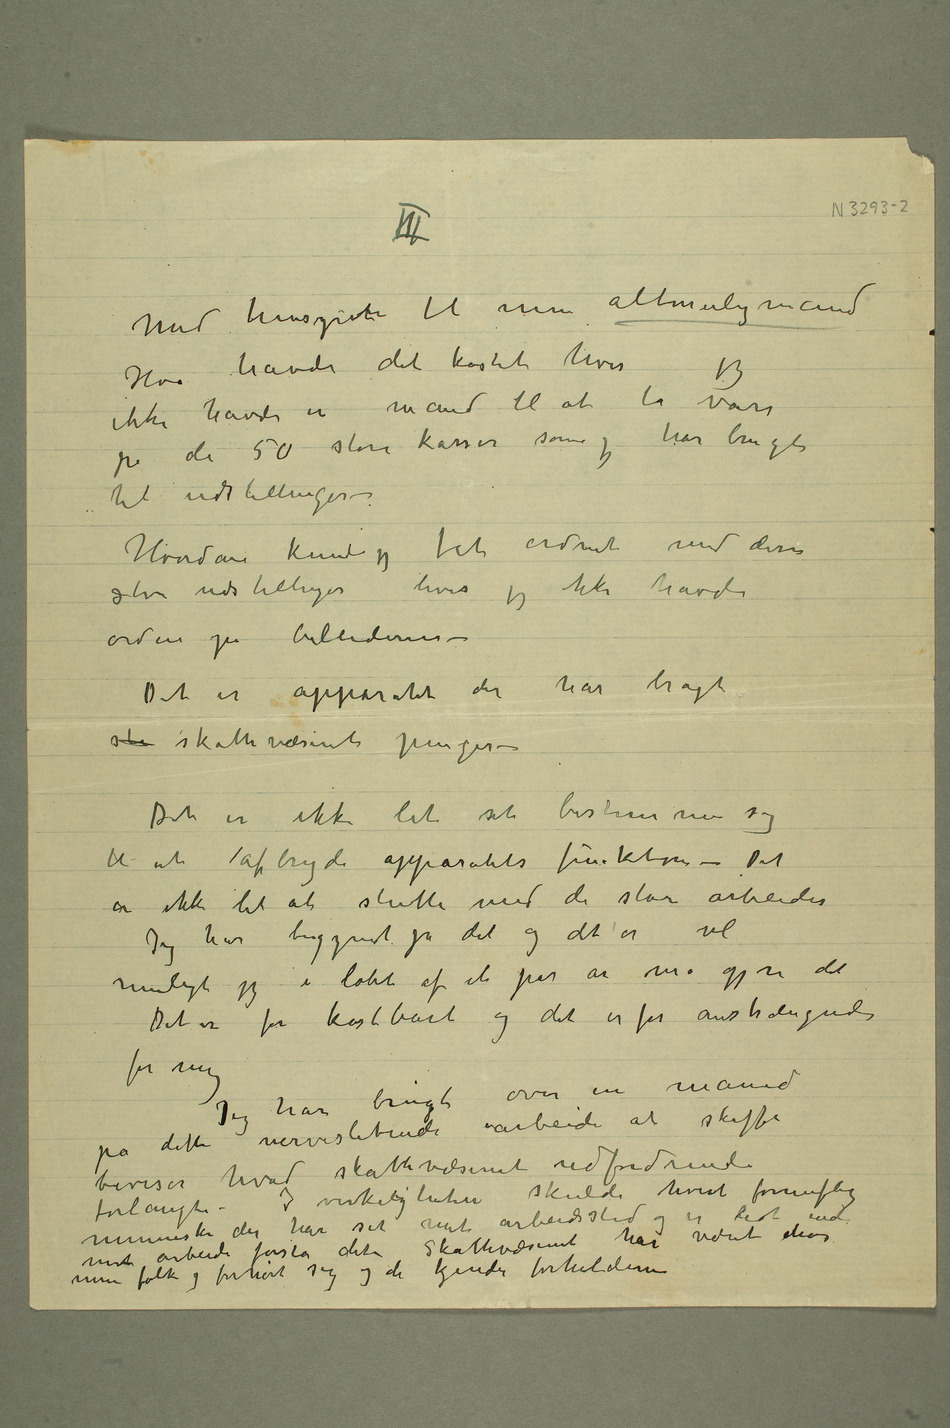 N 3293-2
III
Med hensyn til min altmuligmand
Hva havde det kostet hvis jeg
ikke havde en mand til at ta vare
på de 50 store kasser som jeg har brugt
til udstillinger –
Hvordan kunde jeg fåt ordnet med disse
store udstillinger hvis jeg ikke havde
orden på billederne –
Det er apparatet der har bragt
ska skattevæsenet penger –
Det er ikke let at bestemme sig
til at afbryde apparatets funktion – Det
er ikke let at slutte med de store arbeider
Jeg har begyndt på det og det er vel
muligt jeg i løbet af et par år må gjøre det
Det er for kostbart og det er for anstrængende
for mig
Jeg har brugt over en måned
på dette nerveslidende arbeide at skaffe
beviser hvad skattevæsenet udfordrende
forlangte – I virkeligheten skulde hvert fornuftig
menneske der har set mit arbeidssted og er lidt ind i
mit arbeide forstå dette Skattevæsenet har været hos
mine folk og forhørt sig og de kjender forholdene